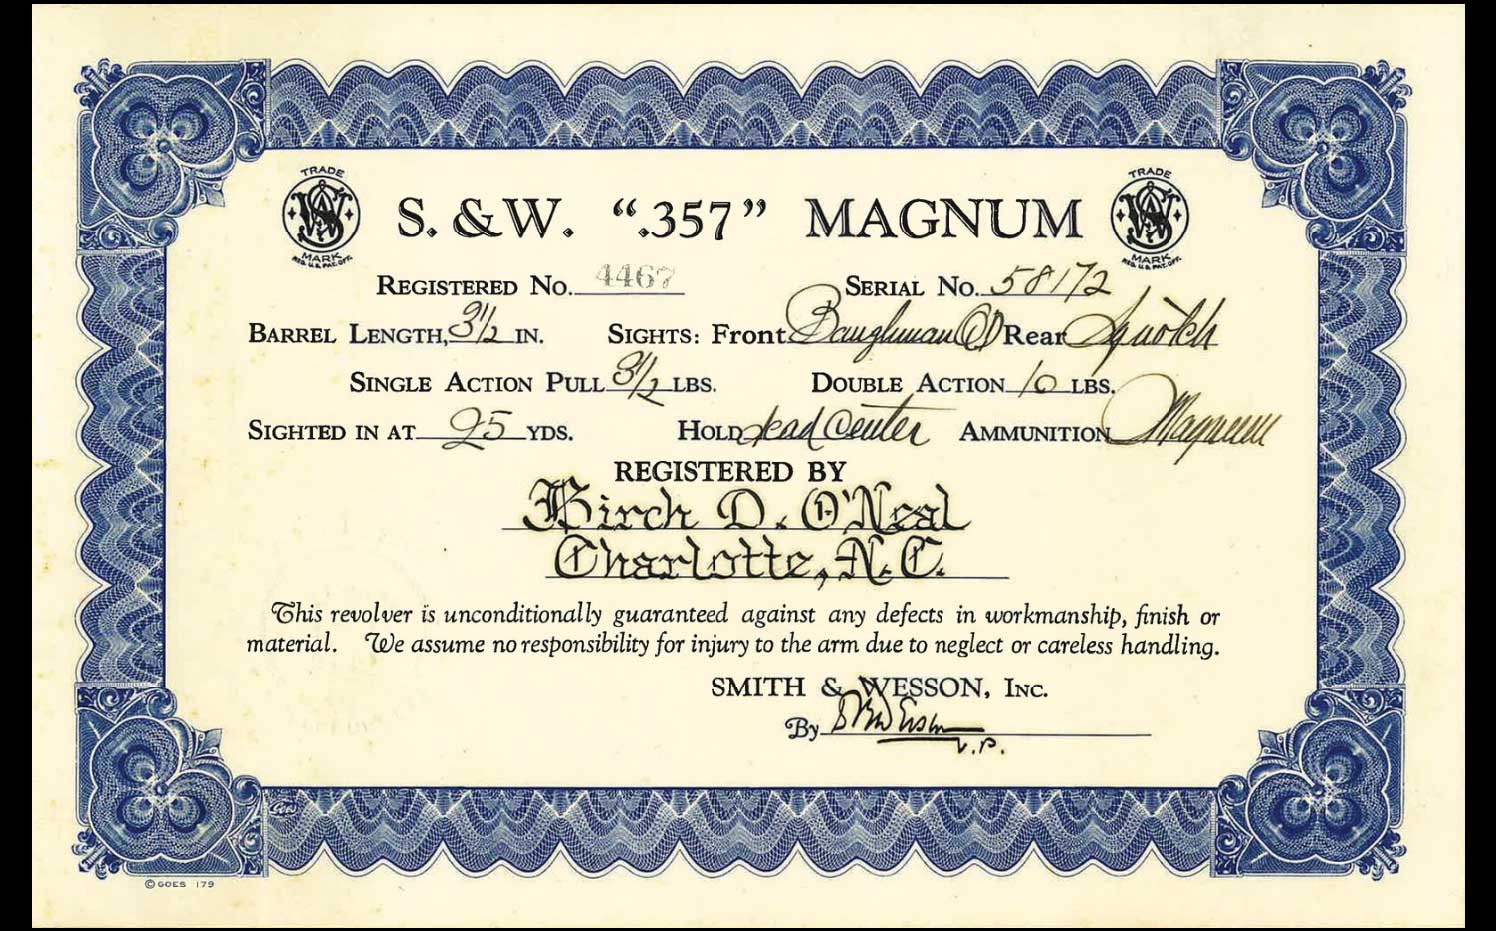 TRADE MARK REG. U.S. PAT. OFF. S. & W. “.357” MAGNUM TRADE MARK REG. U.S. PAT. OFF.
REGISTERED No. 4467 SERIAL No. 58172
BARREL LENGTH, 3 1/2 IN. SIGHTS: Front Baughman QD Rear Sq notch
SINGLE ACTION PULL 3 1/2 LBS. DOUBLE ACTION 10 LBS.
SIGHTED IN AT 25 YDS. HOLD dead center AMMUNITION Magnum
REGISTERED BY
Birch D. O'Neal
Charlotte, N.C.
This revolver is unconditionally guaranteed against any defects in workmanship, finish or
material. We assume no responsibility for injury to the arm due to neglect or careless handling.
SMITH & WESSON, Inc.
By V.P.
© GOES 179